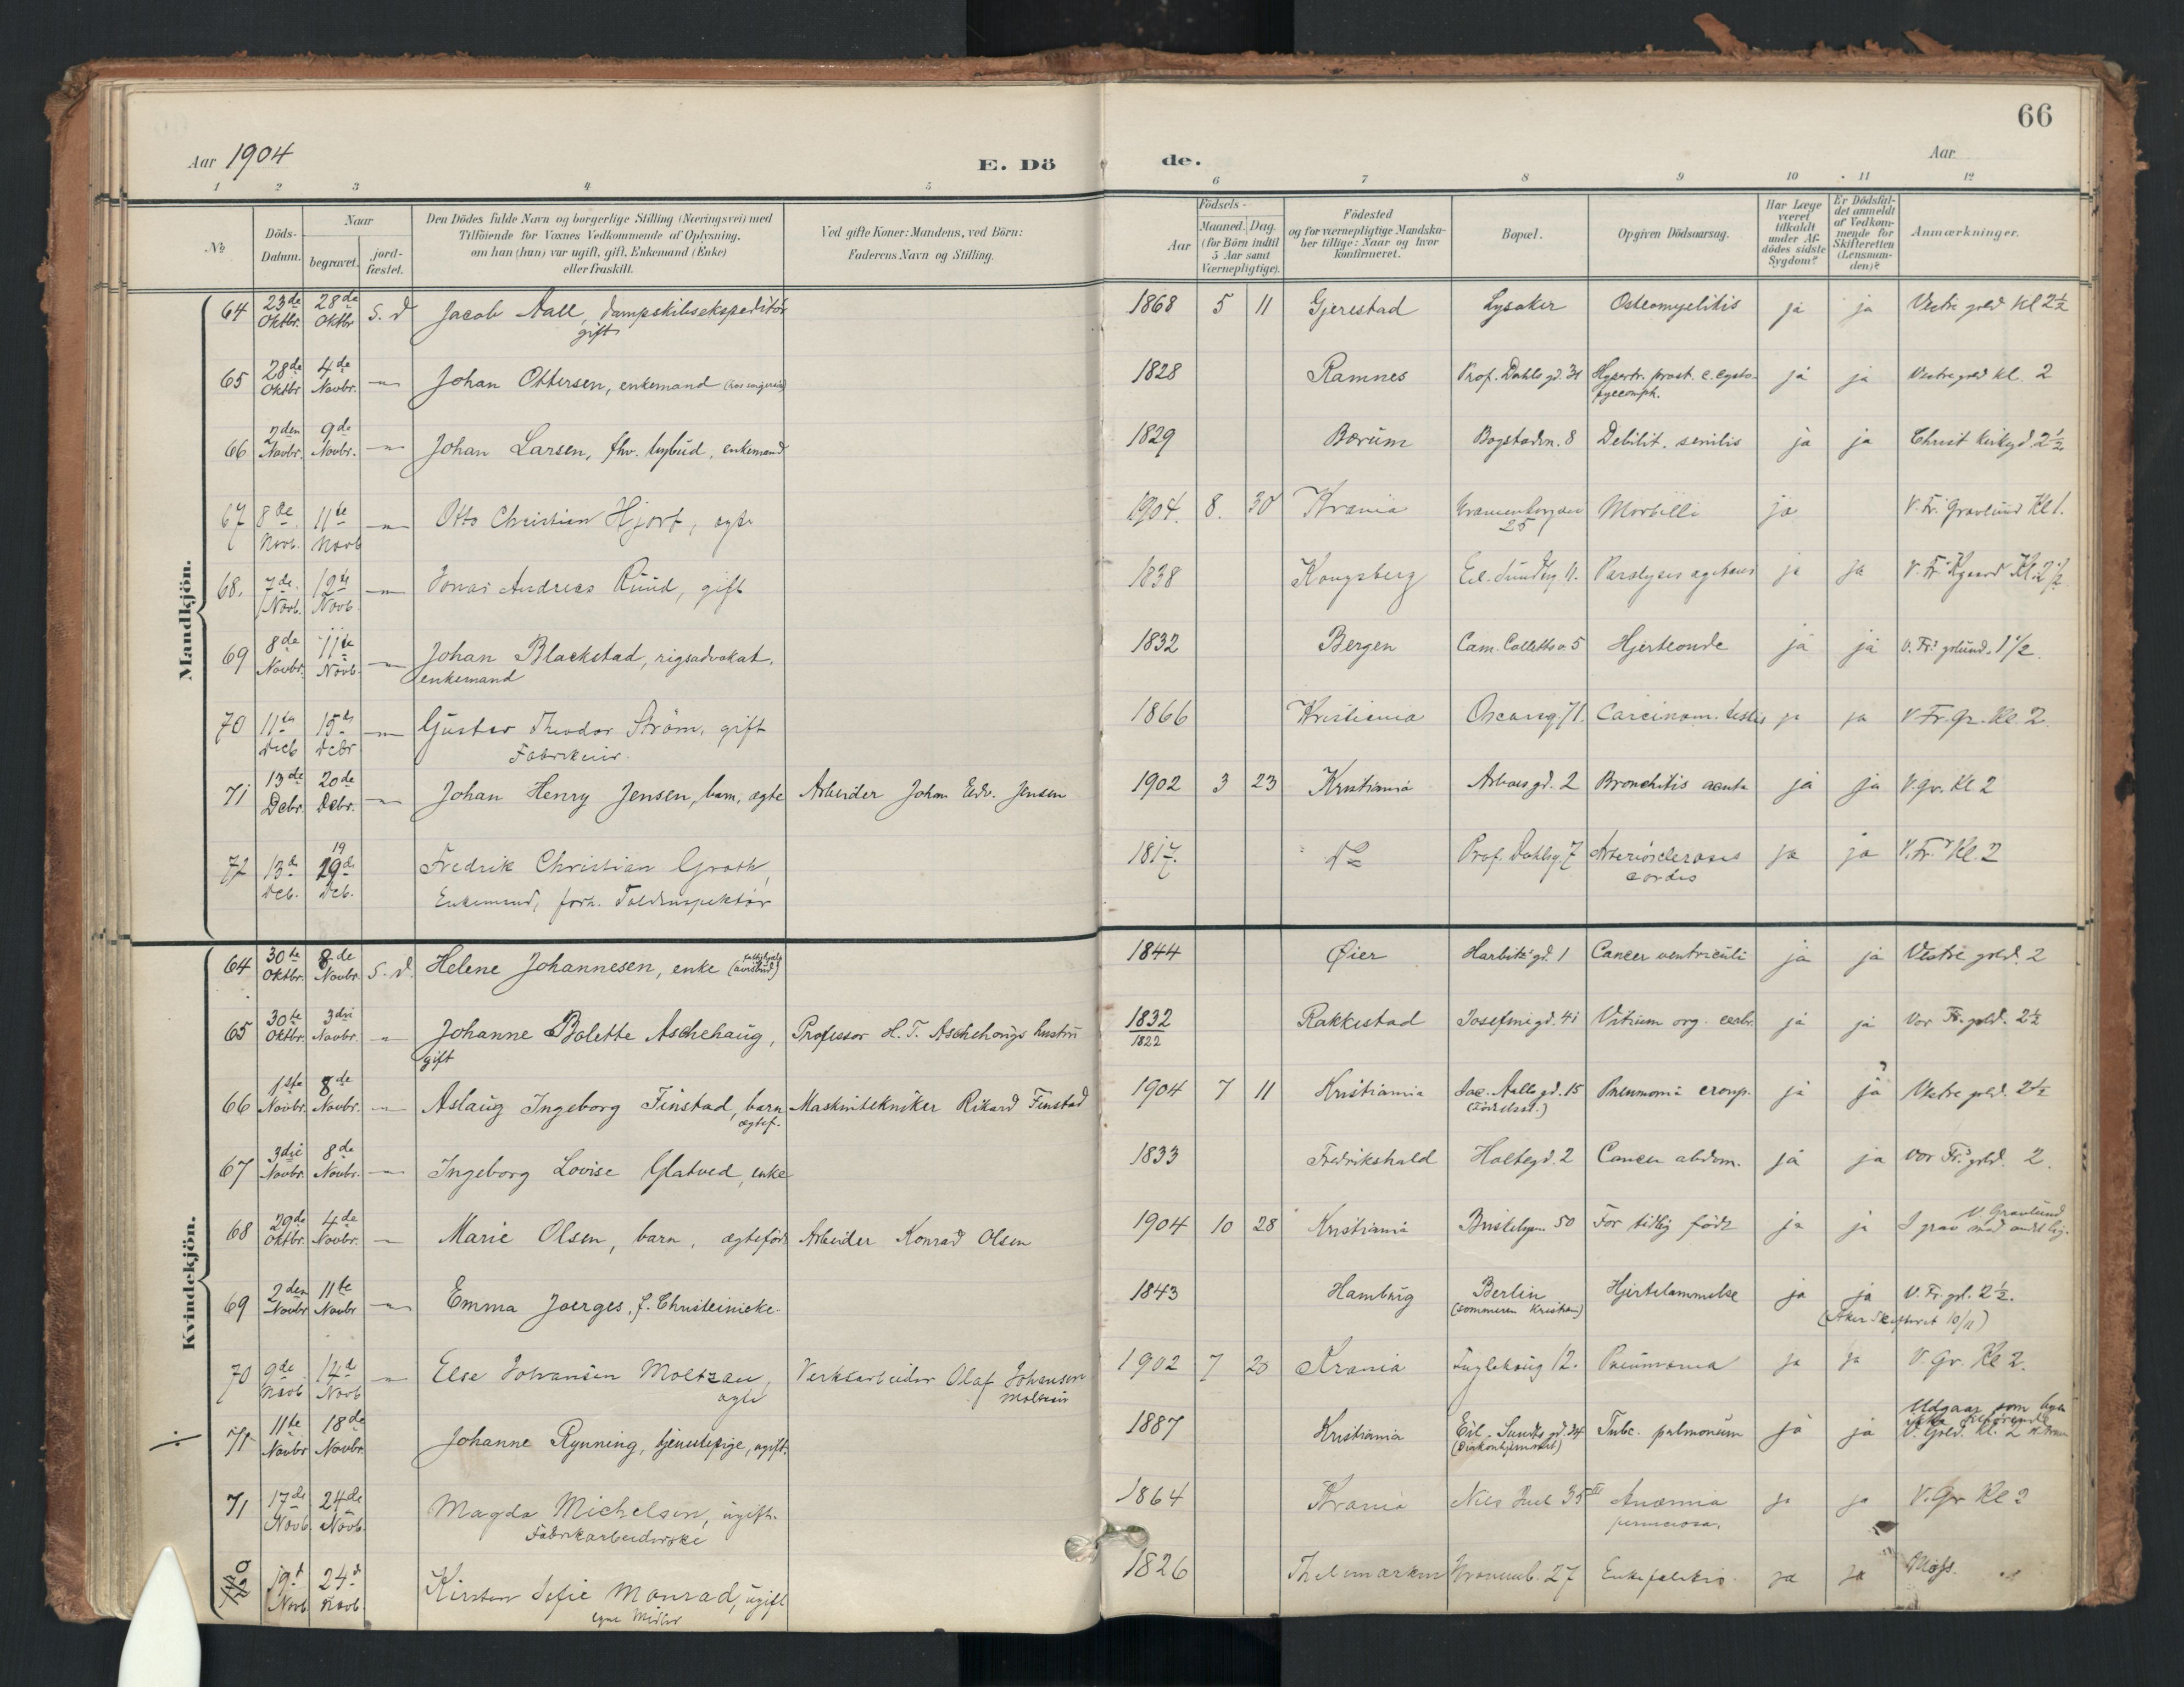 66
Aar 1904 E. Dö de. Aar
1 2 3 4 5 6 7 8 9 10 11 12
No
Döds-Datum.
Naar
begravet. jord-fæstet.
Den Dödes fulde Navn og borgerlige Stilling (Næringsvei) med
Tilföiende for Voxnes Vedkommende af Oplysning,
om han (hun) var ugift, gift, Enkemand (Enke)
eller fraskilt.
Ved gifte Koner: Mandens, ved Börn:
Faderens Navn og Stilling.
Födsels-
Aar Maaned. Dag.
(for Börn indtil
5 Aar samt
Værnepligtige).
Födested
og for værnepligtige Mandska-
ber tillige: Naar og hvor
konfirmeret.
Bopæl.
Opgiven Dödsaarsag.
Har Læge
været
tilkaldt
under Af-
dödes sidste
Sygdom?
Er Dödsfal-
det anmeldt
af Vedkom-
mende for
Skifteretten
(Lensman-
den)?
Anmærkninger.
Mandkjön.
64 23de Oktbr. 28de Oktbr S. d Jacob Aall, dampskibsekspeditør 1868 5 11 Gjerestad Lysaker Osteomyelitis ja ja Vestre grld Kl 2½
gift
65 28de Oktbr 4de Novbr. -"- Johan Ottersen, enkemand 1828 Ramnes Prof. Dahls gd. 31 Hypertr. prost. c. cysto- ja ja Vestre grld kl. 2
66 2den Novbr. 9de Novbr. -"- Johan Larsen, fhv. bybud, enkemand 1829 Bærum Bogstadvn. 8 Debilit. senilis ja ja Christ kirkegd. 2½
67 8de Novb. 11te Novb -"- Otto Christian Hjort, ægte 1904. 8. 30 Krania 25 Morbilli ja V. Fr. Gravlund Kl 1.
68. 7de Novb. 12te Novb -"- Jonas Andreas Ruud, gift 1838 Kongsberg Eil. Sundtsg. 11. Paralysis agitans ja ja
69 8de Novbr. 11te Novb. -"- Johan Blackstad, rigsadvokat, 1832 Bergen Cam. Collettsv. 5 Hjerteonde ja ja V. Frs grlund. 1½
enkemand
70 11te Decb 15de Debr -"- Gustav Theodor Strøm, gift 1866 Kristiania Oscarsg 71. Carcinom. testis ja ja V. Fr. Gr. Kl. 2
71 13de Debr. 20de Debr. -"- Johan Henry Jensen, barn, ægte Arbeider Johan Edv. Jensen 1902 3 23 Kristiania Arbosgd. 2 Bronchitis acuta ja ja V. gr. Kl 2
72 13de Deb. 19 29de Deb. Fredrik Christian Groth, 1817. do Prof. Dahlsg. 7 Arteriosclerosis ja ja V. Fr. Kl. 2
cordis
Enkemand, forh. Toldinspektør
Kvindekjön.
64 30te Oktbr. 8de Novbr. S. d. Helene Johannesen, enke (avisbud) 1844 Øier Harbitz' gd. 1 Cancer ventriculi ja ja Vestre grld. 2
65 30te Oktbr. 3die Novbr. -"- Johanne Bolette Aschehoug, Professor H. T. Aschehougs hustru 1832 Rakkestad Josefinegd. 41 Vitium org. cordis ja ja Vor Frs. grld. 2½
gift 1822
66 1ste Novbr. 8de Novbr. -"- Aslaug Ingeborg Finstad, barn Maskintekniker Rikard Finstad 1904 7 11 Kristiania Jac. Aalls gd. 15 Pneumonia croup. ja ja Vestre grld. 2½
ægtef. (Fødselsst.)
67 3die Novbr. 8de Novbr. -"- Ingeborg Lovise Glatved, enke 1833 Fredrikshald Holtegd. 2 Cancer abdom. ja ja Vor Frs grld. 2.
68 29de Oktbr. 4de Novbr. -"- Marie Olsen, barn, ægtefødt Arbeider Konrad Olsen 1904 10 28 Kristiania 50 For tidlig født ja ja V. Gravlund
I grav med andet lig.
69 2den Novbr 11te Novbr -"- Emma Joerges, f. Christeinicke. 1843 Hamburg Berlin Hjertelammelse ja ja V. Fr. grl. 2½.
(sommeren Kristian)
70 9de Novb 14de Novb -"- Else Johansen Moltzau, Verksarbeider Olaf Johansen 1902 7 23 Krania Fuglehaug 12. Pneumonia ja ja V. Gr. Kl 2.
ægte Moltzau
÷ 71 11te Novbr 18de Novbr. Johanne Rynning, tjenestepige, ugift. 1887 Kristiania Eil. Sundts gd. 34 Tubc. pulmonum ja ja Udgaar som
V. Grld. Kl. 2
71 17de Novb. 24de Novb. Magda Michelsen, ugift. 1864 Krania Niels Juel 35III Anæmia ja ja V. Gr Kl 2
Fabrikarbeiderske perniciosa.
19d Novb 24d Novb Kirsten Sofie Monrad, ugift 1826 Thelemarken 27 ja ja
egne Midler